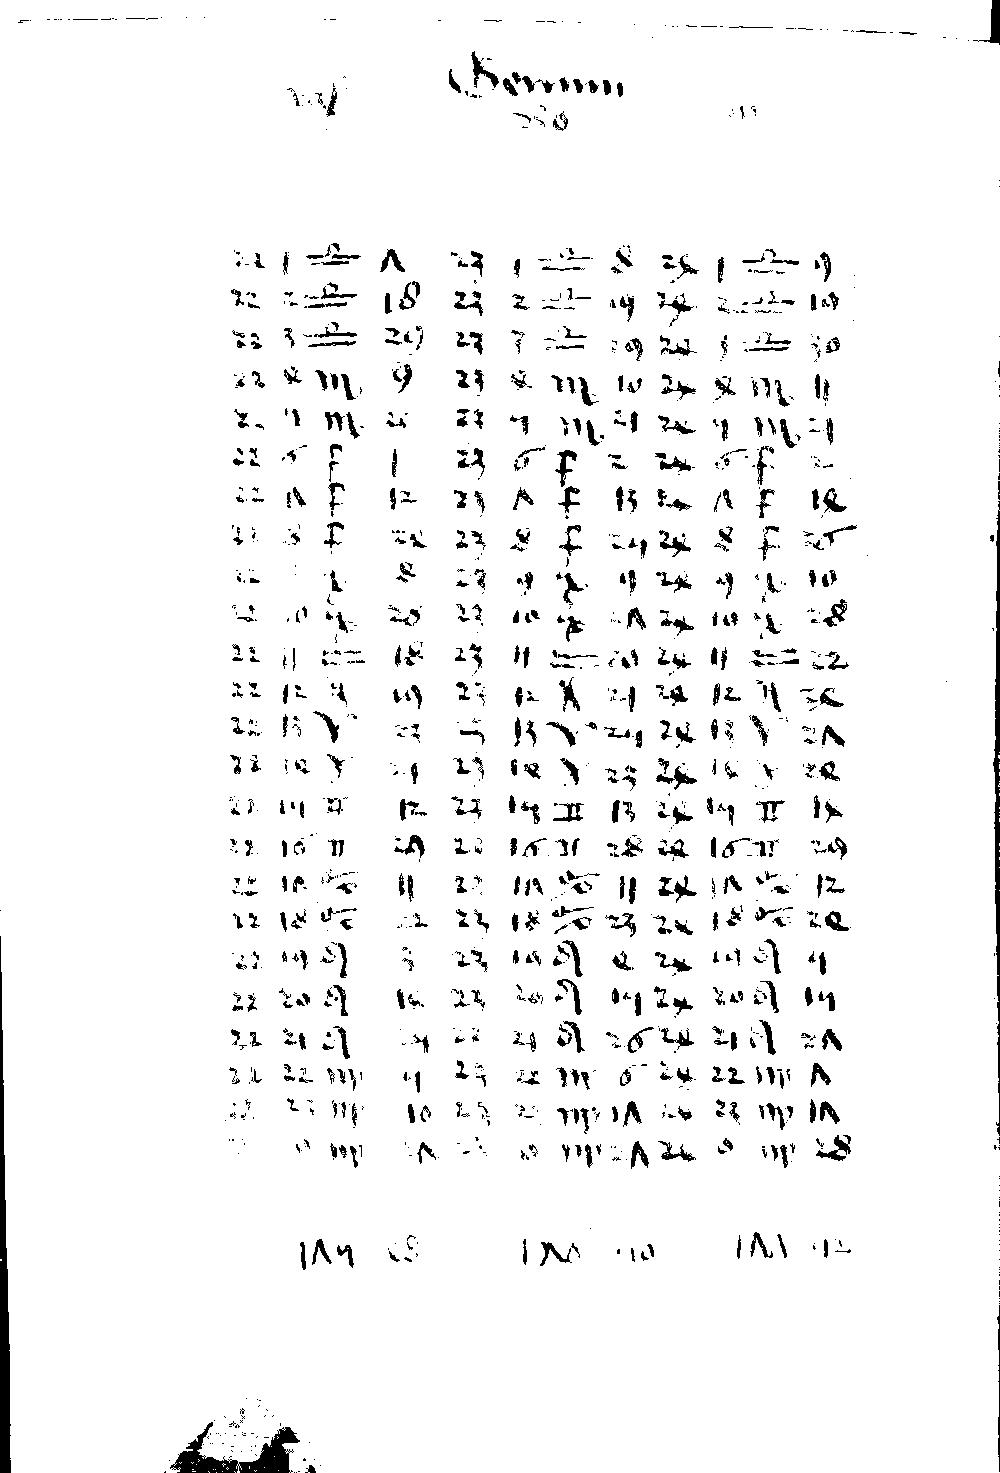 22 1 ♎ 7 23 1 ♎ 8 24 1 ♎ 9
22 2 ♎ 18 23 2 ♎ 19 24 2 ♎ 19
22 3 ♎ 29 23 3 ♎ 29 24 3 ♎ 30
22 4 ♏ 9 23 4 ♏ 10 24 4 ♏ 11
5 ♏ 23 5 ♏ 21 24 5 ♏ 21
22 6 ♐ 1 23 6 ♐ 2 24 6 ♐ 2
22 7 ♐ 12 23 7 ♐ 13 24 7 ♐ 14
22 8 ♐ 24 23 8 ♐ 25 24 8 ♐ 26
22 ♑ 8 23 9 ♑ 9 24 9 ♑ 10
22 10 ♑ 23 10 ♑ 27 24 10 ♑ 28
22 11 ♒ 18 23 11 ♒ 20 24 11 ♒ 22
22 12 ♓ 19 23 12 ♓ 21 24 12 ♓ 24
22 13 ♈ 23 13 ♈ 25 24 13 ♈ 27
22 14 ♉ 21 23 14 ♉ 23 24 14 ♉ 24
22 15 ♊ 12 23 15 ♊ 13 24 15 ♊ 14
22 16 ♊ 27 23 16 ♊ 28 24 16 ♊ 29
22 17 ♋ 11 23 17 ♋ 11 24 17 ♋ 12
22 18 ♋ 22 23 18 ♋ 23 24 18 ♋ 24
22 19 ♌ 3 23 19 ♌ 4 24 19 ♌ 5
22 20 ♌ 14 23 20 ♌ 15 24 20 ♌ 15
22 21 ♌ 25 23 21 ♌ 26 24 21 ♌ 27
22 22 ♍ 5 23 22 ♍ 6 24 22 ♍ 7
22 23 ♍ 16 23 23 ♍ 17 24 23 ♍ 17
0 ♍ 27 23 0 ♍ 27 24 0 ♍ 28
175 10 171 12